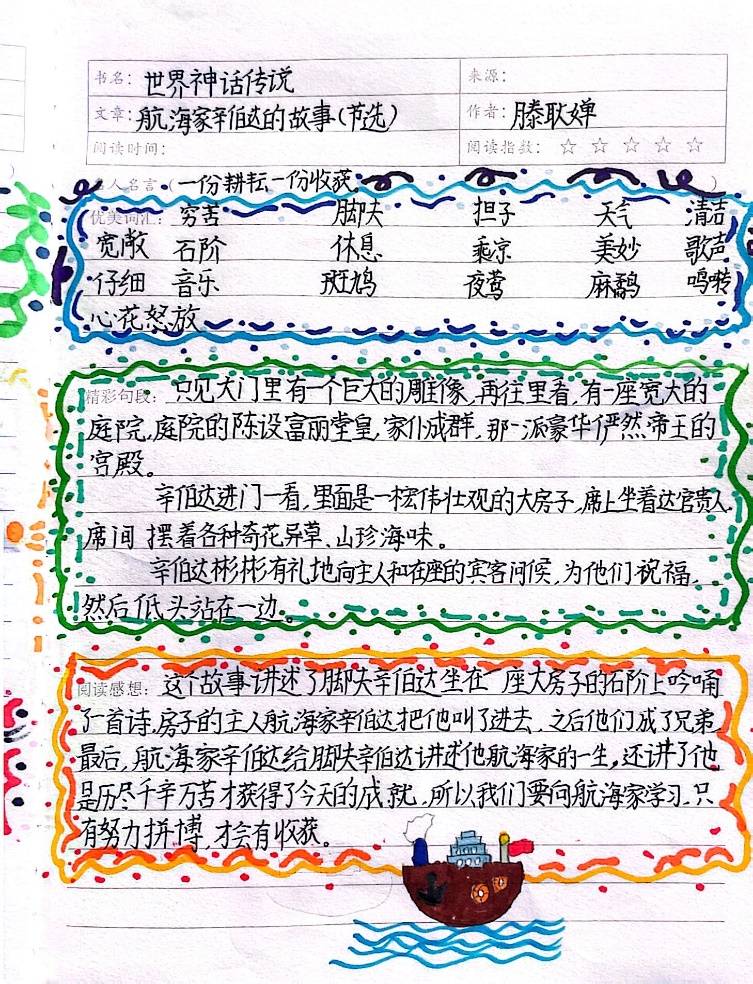 书名：世界神话传说 来源：
文章：航海家辛伯达的故事（节选） 作者：滕耿婵
阅读时间： 阅读指数：☆ ☆ ☆ ☆ ☆
名人名言（一份耕耘一份收获）
优美词汇：穷苦 脚夫 担子 天气 清洁
宽敞 石阶 休息 乘凉 美妙 歌声
仔细 音乐 斑鸠 夜莺 麻鹬 鸣啭
心花怒放
精彩句段：只见大门里有一个巨大的雕像，再往里看，有一座宽大的
庭院，庭院的陈设富丽堂皇，家仆成群，那一派豪华俨然帝王的
宫殿。
辛伯达进门一看，里面是一栋宏伟壮观的大房子，席上坐着达官贵人
席间摆着各种奇花异草、山珍海味。
辛伯达彬彬有礼地向主人和在座的宾客问候，为他们祝福，
然后低头站在一边。
阅读感想：这个故事讲述了脚夫辛伯达坐在一座大房子的石阶上吟诵
了一首诗，房子的主人航海家辛伯达把他叫了进去，之后他们成了兄弟
最后，航海家辛伯达给脚夫辛伯达讲述他航海家的一生，还讲了他
是历尽千辛万苦才获得了今天的成就，所以我们要向航海家学习，只
有努力拼搏，才会有收获。